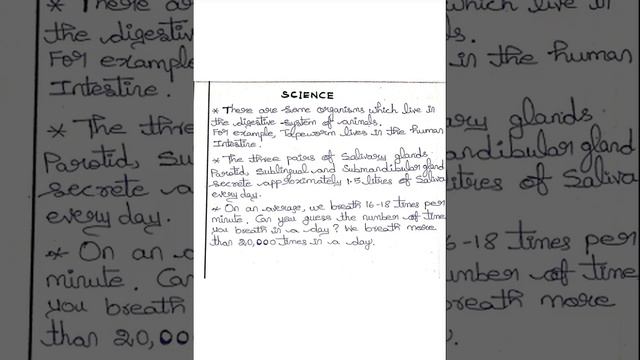 SCIENCE
* There are some organisms which live in
the digestive system of animals.
For example, Tapeworm lives in the human
Intestine.
* The three pairs of Salivary glands.
Parotid, Sublingual and Submandibular gland
secrete approximately 1.5 litres of Saliva
every day.
* On an average, we breath 16-18 times per
minute. Can you guess the number of time
you breath in a day? We breath more
than 20,000 times in a day.